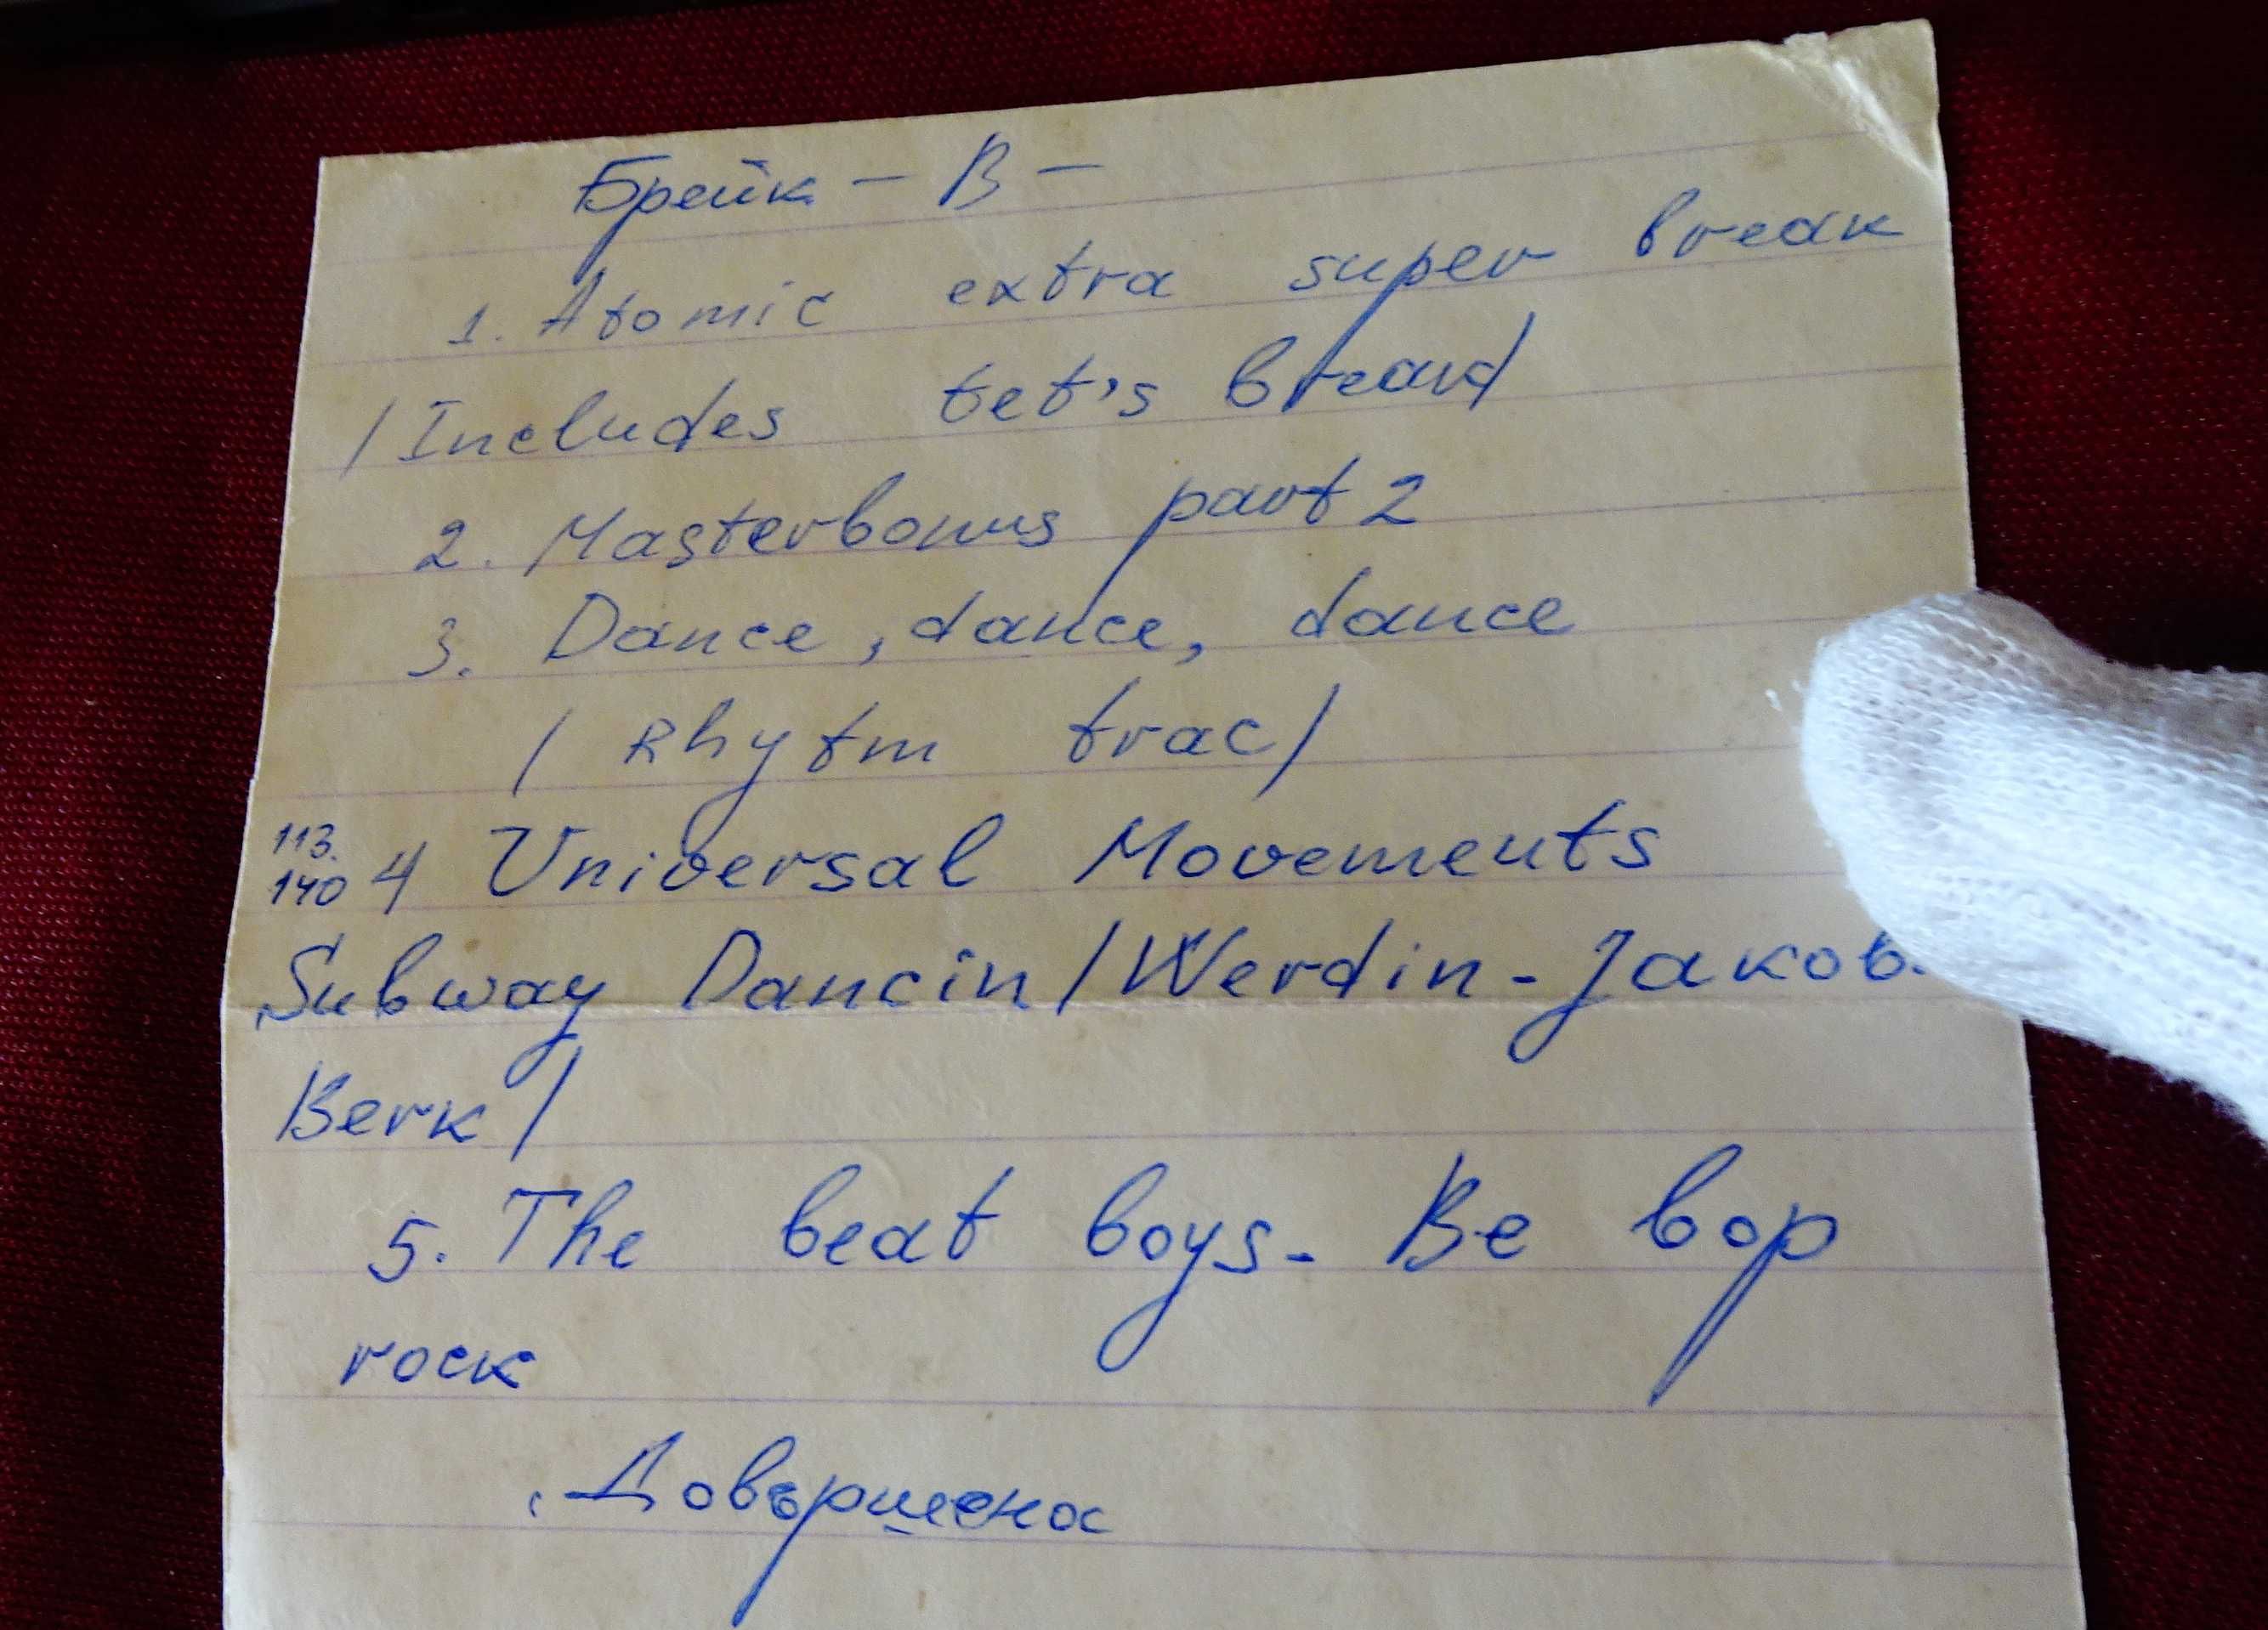 Брейк - В -
1. Atomic extra super break
/Includes tet's break/
2. Masterbonus part 2
3. Dance, dance, dance
/ Rhytm trac/
113.
140 4 Universal Movements
Subway Dancin /Werdin-Jakob.
Berk /
5. The beat boys - Be bop
rock
Довършена